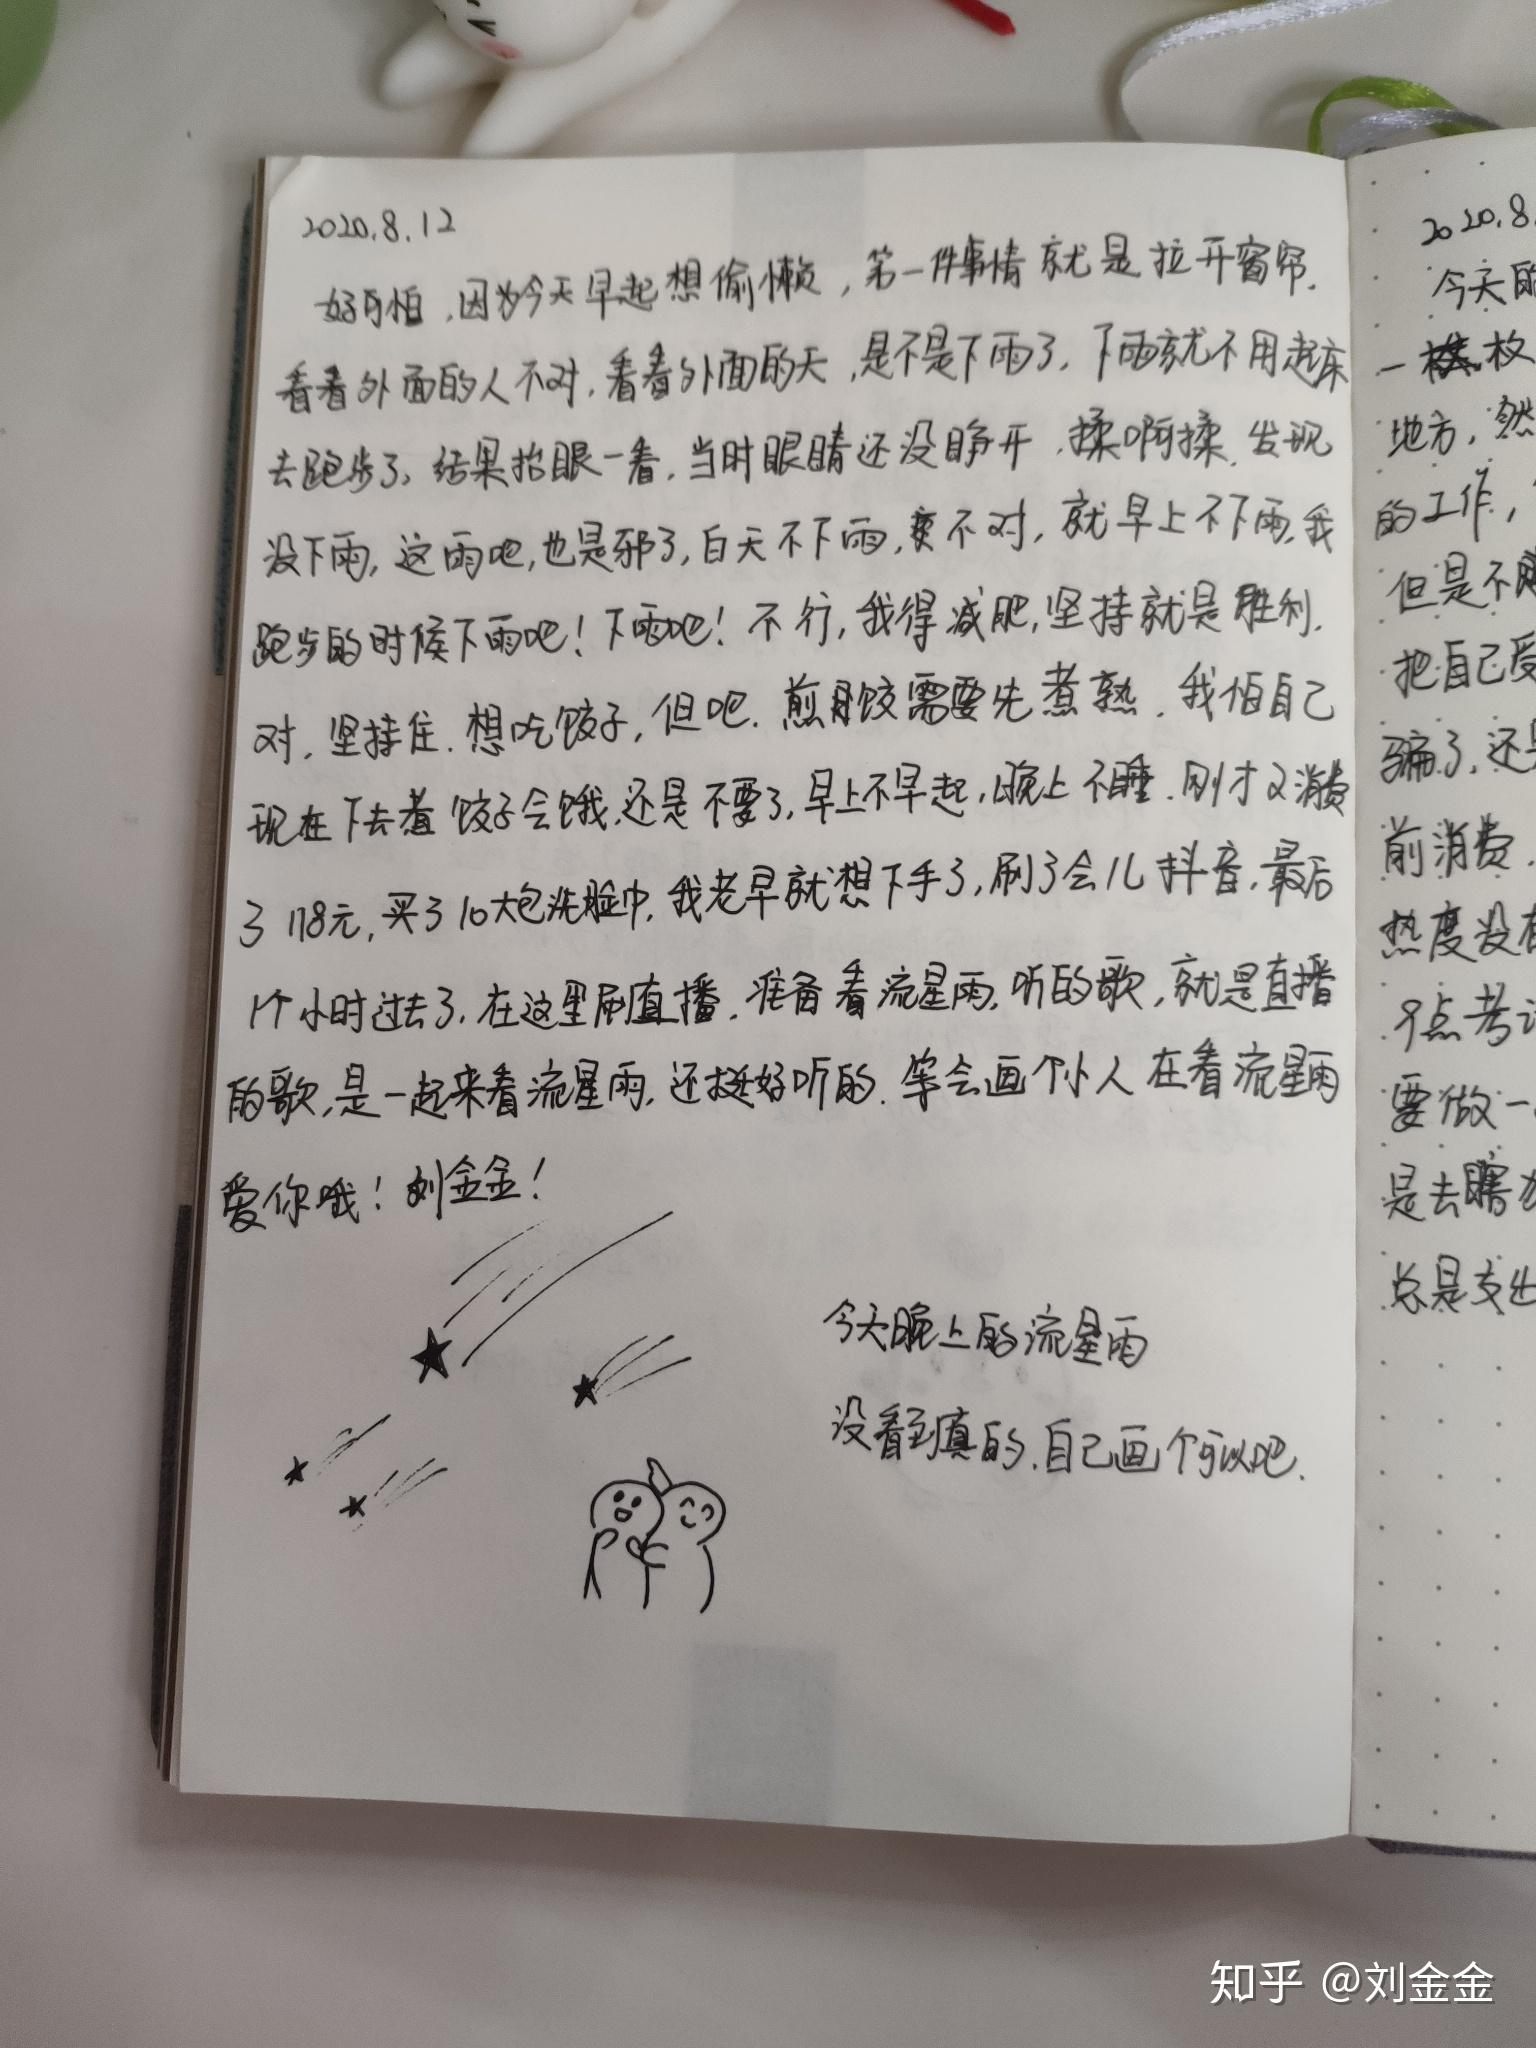 2020.8.12
好可怕,因为今天早起想偷懒,第一件事情就是拉开窗帘.
看看外面的人不对,看看外面的天,是不是下雨了,下雨就不用起床
去跑步了,结果抬眼一看,当时眼睛还没睁开,揉啊揉,发现
没下雨,这雨吧,也是邪了,白天不下雨,不对,就早上不下雨,我
跑步的时候下雨吧!下雨吧!不行,我得减肥,坚持就是胜利.
对,坚持住.想吃饺子,但吧.煎饺需要先煮熟.我怕自己
现在下去煮饺子会饿,还是不要了,早上不早起,晚上不睡.刚才又消费
了118元,买了10大包洗脸巾,我老早就想下手了,刷了会儿抖音,最后
1个小时过去了,在这里刷直播,准备看流星雨,听的歌,就是直播
的歌,是一起来看流星雨,还挺好听的.等会画个小人在看流星雨
爱你哦!刘金金!
今天晚上的流星雨
没看到真的,自己画个可以吧.
2020.8.
今天的
一枚
地方,然
的工作,
但是不
把自己受
骗了,还是
前消费,
热度没有
9点考试
要做一
是去
总是支出
知乎 @刘金金